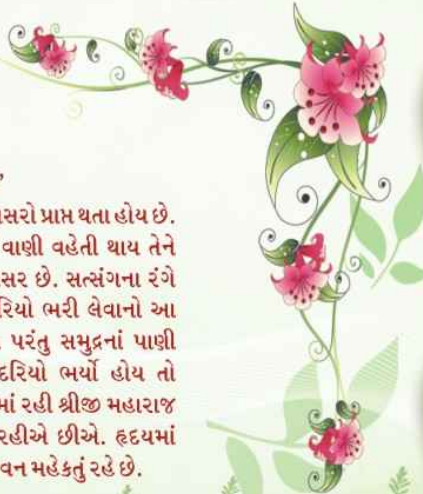 ’
સરો પ્રાપ્ત થતા હોય છે.
વાણી વહેતી થાય તેને
સર છે. સત્સંગના રંગે
રિયો ભરી લેવાનો આ
પરંતુ સમુદ્રનાં પાણી
દરિયો ભર્યો હોય તો
માં રહી શ્રીજી મહારાજ
રહીએ છીએ. હૃદયમાં
વન મહેકતું રહે છે.